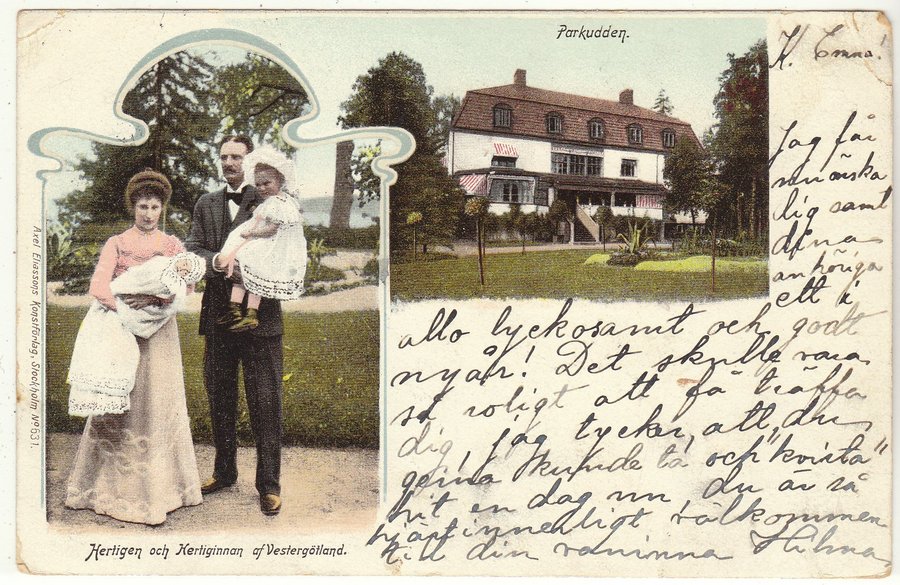 Parkudden.
K. Emma!
Jag får
önska
dig samt
dina
anhöriga
ett i
allo lyckosamt och godt
nyår! Det skulle vara
så roligt att få träffa
dig, jag tycker, att du
gerna kunde ta och "kvista"
hit en dag nu, du är så
hjärtinnerligt välkommen
till din väninna Hilma
Hertigen och Hertiginnan af Vestergötland.
Axel Eliassons Konstförlag, Stockholm No 631.